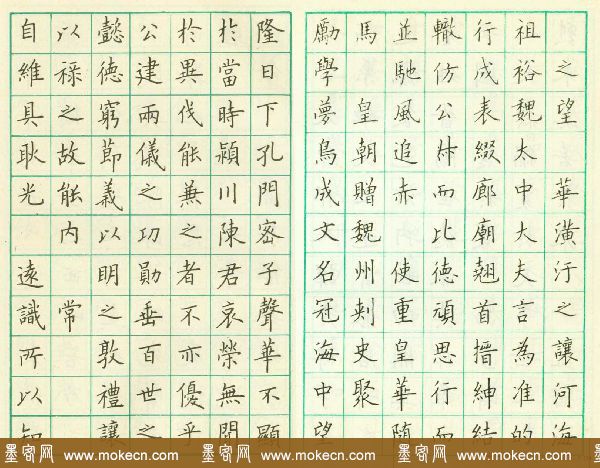 之望 華潢汙之讓河海
祖裕魏太中大夫言為准的
行成表綴廊廟翹首搢紳結
轍仿公材而比德頑思行而
並馳風追赤 使重皇華隨
馬 皇朝贈魏州刺史聚
勵學夢鳥成文名冠海中望
隆日下孔門密子聲華不顯
於當時潁川陳君哀榮無聞
於異伐能兼之者不亦優乎
公建兩儀之功勛垂百世之
懿德窮節義以明之敦禮讓
以祿之故能內 常
自維具耿光 遠識所以知
墨客网 www.mokecn.com 墨客网 www.mokecn.com 墨客网 www.mokecn.com